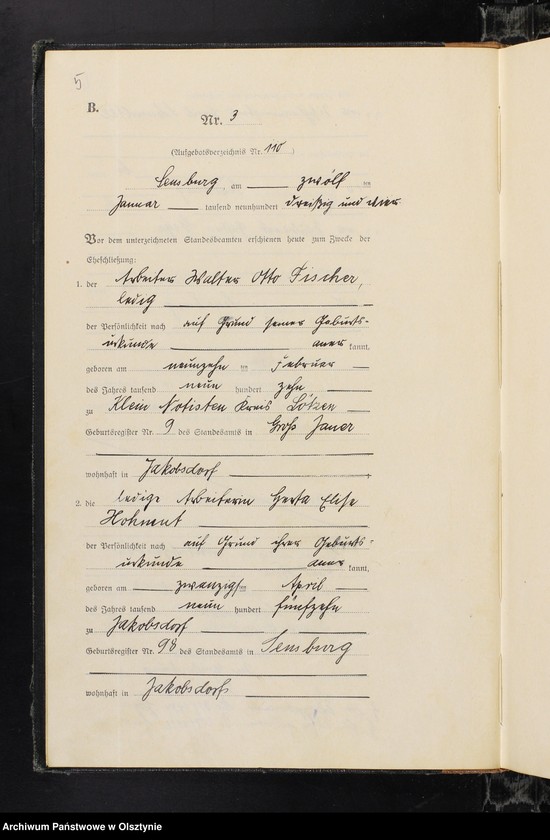 5
B.
Nr. 3
(Aufgebotsverzeichnis Nr. 110)
Sensburg, am zwölf ten
Januar tausend neunhundert dreißig und vier
Vor dem unterzeichneten Standesbeamten erschienen heute zum Zwecke der
Eheschließung:
1. der Arbeiter Walter Otto Fischer,
ledig
der Persönlichkeit nach auf Grund seiner Geburts-
urkunde aner kannt,
geboren am neunzehn ten Februar
des Jahres tausend neun hundert zehn
zu Klein Notisten Kreis Lötzen
Geburtsregister Nr. 9 des Standesamts in Groß Jauer
wohnhaft in Jakobsdorf,
2. die ledige Arbeiterin Herta Elise
der Persönlichkeit nach auf Grund ihrer Geburts-
urkunde aner kannt,
geboren am zwanzigsten April
des Jahres tausend neun hundert fünfzehn
zu Jakobsdorf
Geburtsregister Nr. 98 des Standesamts in Sensburg
wohnhaft in Jakobsdorf
Archiwum Państwowe w Olsztynie